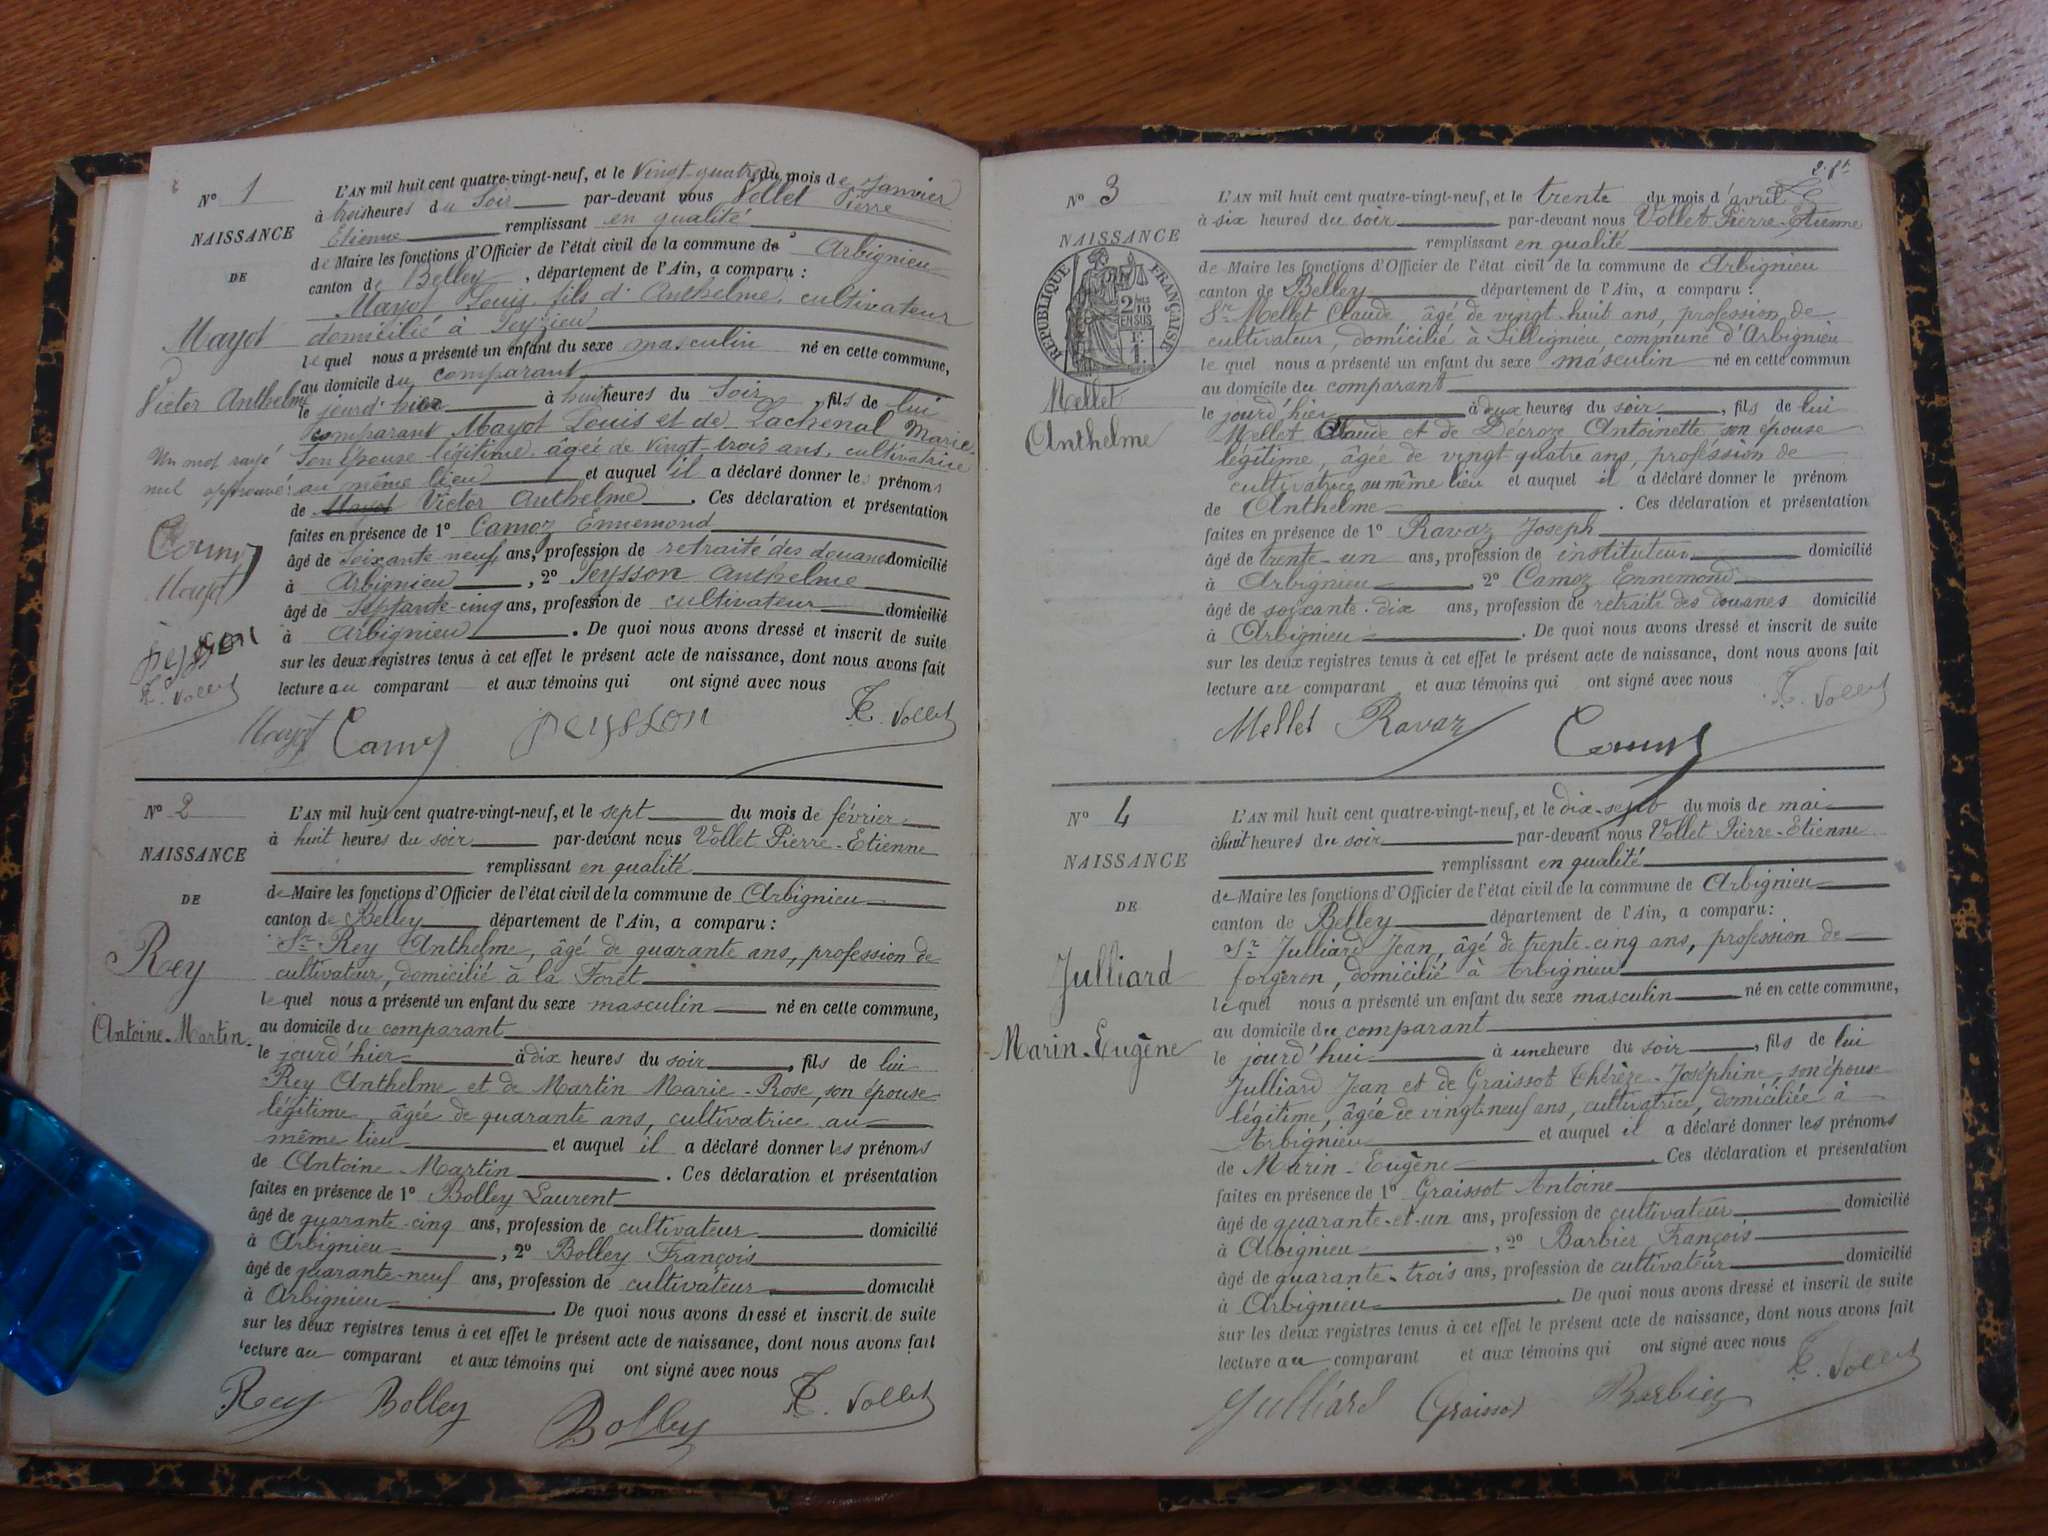 N° 1
NAISSANCE
DE
Mayot
Victor Anthelme
Un mot rayé
nul approuvé:
Camoz
Mayot
peysson
E. Vollet
L'AN mil huit cent quatre-vingt-neuf, et le Vingt-quatre du mois de Janvier
à trois heures du Soir par-devant nous Vollet Pierre
Etienne remplissant en qualité
de Maire les fonctions d'Officier de l'état civil de la commune de Arbignieu
canton de Belley, département de l'Ain, a comparu :
Mayot Louis fils d'Anthelme, cultivateur
domicilié à Peyzieu
lequel nous a présenté un enfant du sexe masculin né en cette commune,
au domicile du comparant
le jourd'hier à huit heures du Soir, fils de lui
comparant Mayot Louis et de Lachenal Marie
son épouse légitime, âgée de vingt-trois ans, cultivatrice
au même lieu et auquel il a déclaré donner les prénoms
de Mayot Victor Anthelme. Ces déclaration et présentation
faites en présence de 1° Camoz Ennemond
âgé de soixante neuf ans, profession de retraité des douanes domicilié
à Arbignieu, 2° Peysson Anthelme
âgé de septante-cinq ans, profession de cultivateur domicilié
à Arbignieu. De quoi nous avons dressé et inscrit de suite
sur les deux registres tenus à cet effet le présent acte de naissance, dont nous avons fait
lecture au comparant et aux témoins qui ont signé avec nous
Mayot Camoz peysson E. Vollet
N° 2
NAISSANCE
DE
Rey
Antoine-Martin.
L'AN mil huit cent quatre-vingt-neuf, et le sept du mois de février
à huit heures du soir par-devant nous Vollet Pierre-Etienne
remplissant en qualité
de Maire les fonctions d'Officier de l'état civil de la commune de Arbignieu
canton de Belley département de l'Ain, a comparu :
Sr Rey Anthelme, âgé de quarante ans, profession de
cultivateur, domicilié à la Forêt
lequel nous a présenté un enfant du sexe masculin né en cette commune,
au domicile du comparant
le jourd'hier à dix heures du soir, fils de lui
Rey Anthelme et de Martin Marie-Rose, son épouse
légitime, âgée de quarante ans, cultivatrice au
même lieu et auquel il a déclaré donner les prénoms
de Antoine-Martin. Ces déclaration et présentation
faites en présence de 1° Bolley Laurent
âgé de quarante-cinq ans, profession de cultivateur domicilié
à Arbignieu, 2° Bolley François
âgé de quarante-neuf ans, profession de cultivateur domicilié
à Arbignieu. De quoi nous avons dressé et inscrit de suite
sur les deux registres tenus à cet effet le présent acte de naissance, dont nous avons fait
lecture au comparant et aux témoins qui ont signé avec nous
Rey Bolley Bolley E. Vollet
N° 3
NAISSANCE
RÉPUBLIQUE FRANÇAISE
2/10
EN SUS
1 F.
Mellet
Anthelme
L'AN mil huit cent quatre-vingt-neuf, et le trente du mois d'avril
à six heures du soir par-devant nous Vollet Pierre-Etienne
remplissant en qualité
de Maire les fonctions d'Officier de l'état civil de la commune de Arbignieu
canton de Belley département de l'Ain, a comparu :
Sr Mellet Claude âgé de vingt-huit ans, profession de
cultivateur, domicilié à Sillignieu commune d'Arbignieu
lequel nous a présenté un enfant du sexe masculin né en cette commun
au domicile du comparant
le jourd'hier à deux heures du soir, fils de lui
Mellet Claude et de Décroze Antoinette son épouse
légitime, âgée de vingt quatre ans, profession de
cultivatrice au même lieu et auquel il a déclaré donner le prénom
de Anthelme. Ces déclaration et présentation
faites en présence de 1° Ravaz Joseph
âgé de trente-un ans, profession de instituteur domicilié
à Arbignieu, 2° Camoz Ennemond
âgé de soixante-dix ans, profession de retraité des douanes domicilié
à Arbignieu. De quoi nous avons dressé et inscrit de suite
sur les deux registres tenus à cet effet le présent acte de naissance, dont nous avons fait
lecture au comparant et aux témoins qui ont signé avec nous
Mellet Ravaz Camoz E. Vollet
N° 4
NAISSANCE
DE
Julliard
Marin-Eugène
L'AN mil huit cent quatre-vingt-neuf, et le dix-sept du mois de mai
à huit heures du soir par-devant nous Vollet Pierre-Etienne
remplissant en qualité
de Maire les fonctions d'Officier de l'état civil de la commune de Arbignieu
canton de Belley département de l'Ain, a comparu :
Sr Julliard Jean, âgé de trente-cinq ans, profession de
forgeron, domicilié à Arbignieu
lequel nous a présenté un enfant du sexe masculin né en cette commune,
au domicile du comparant
le jourd'hui à une heure du soir, fils de lui
Julliard Jean et de Graissot Thérèze-Joséphine, son épouse
légitime, âgée de vingt-neuf ans, cultivatrice, domiciliée à
Arbignieu et auquel il a déclaré donner les prénoms
de Marin-Eugène. Ces déclaration et présentation
faites en présence de 1° Graissot Antoine
âgé de quarante-et-un ans, profession de cultivateur domicilié
à Arbignieu, 2° Barbier François
âgé de quarante-trois ans, profession de cultivateur domicilié
à Arbignieu. De quoi nous avons dressé et inscrit de suite
sur les deux registres tenus à cet effet le présent acte de naissance, dont nous avons fait
lecture au comparant et aux témoins qui ont signé avec nous
Julliard Graissot Barbier E. Vollet